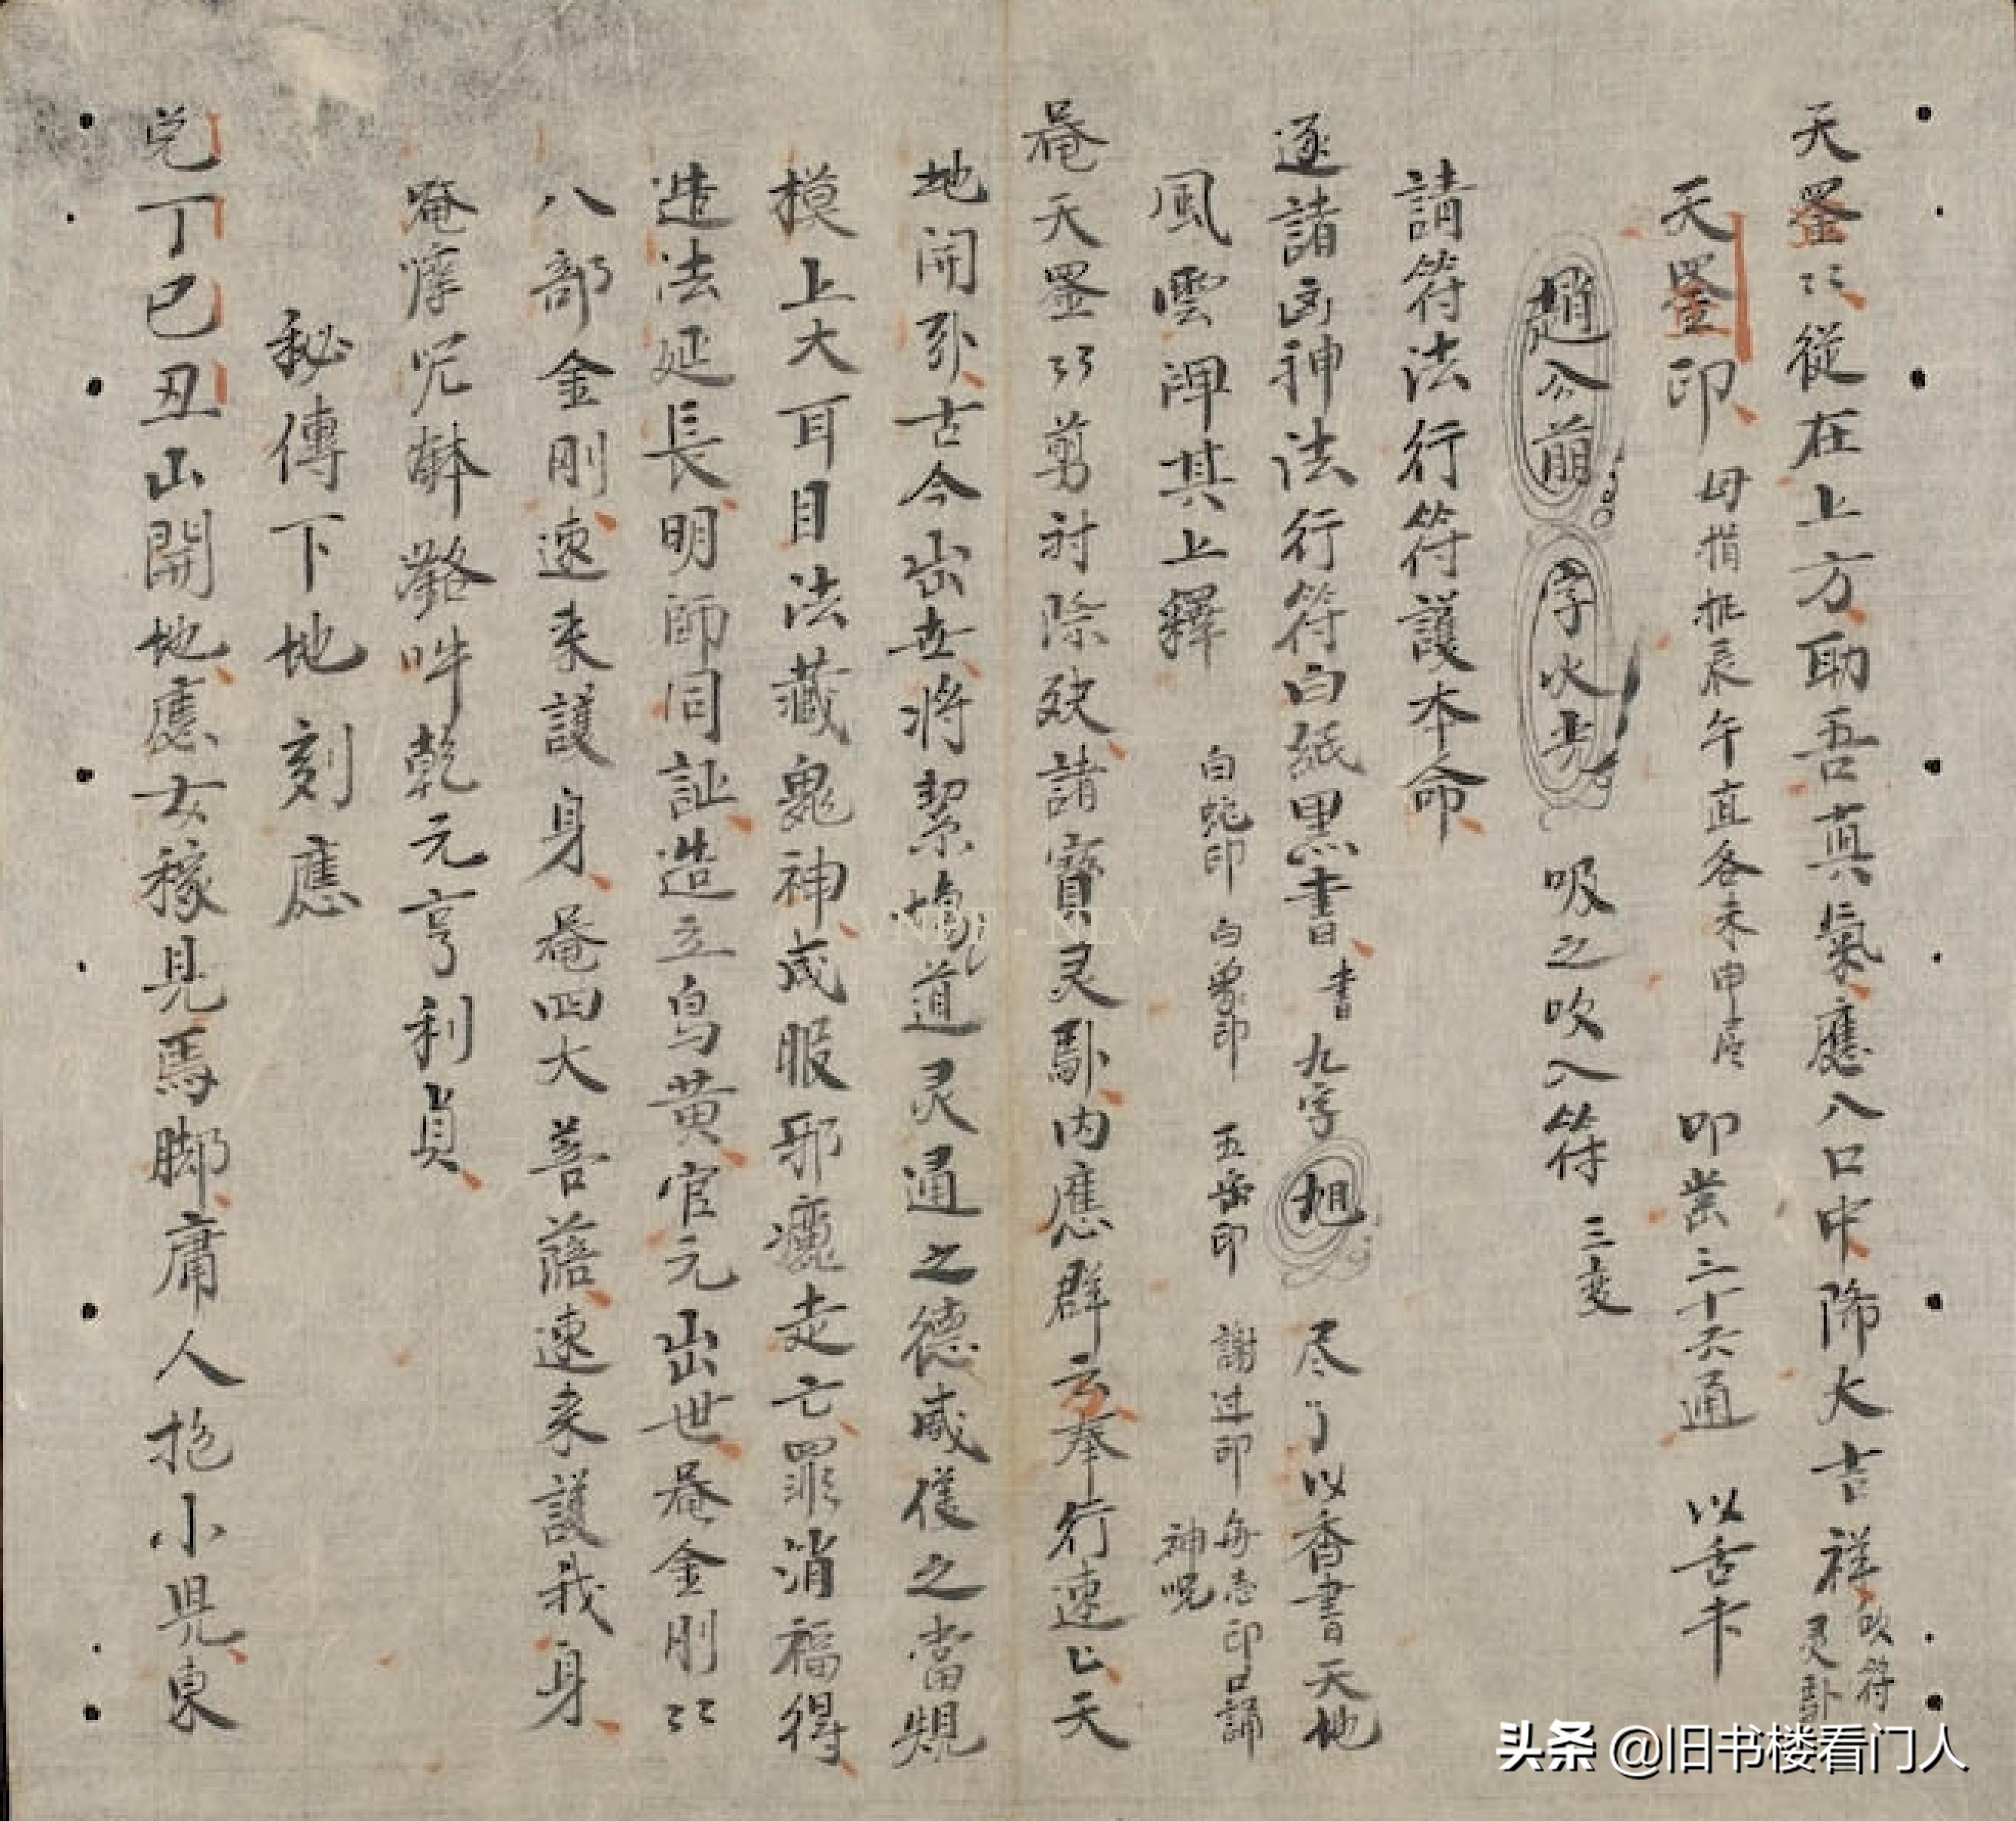 天罡〻從在上方助吾真氣應入口中降大吉祥吹符灵卦
天罡印母指掐辰午直各未申位叩齒三十六通以舌卡
趙公萠字火光吸之吹入符三变
請符法行符護本命
逐諸凶神法行符白紙黑書書九字旭尽了以香書天地
風雲潭其上釋白蛇印白象印五岳印謝过印每忘印口誦神呪
奄天罡〻剪討除殃請寳灵馭内應群玄奉行速〻天
地開劈古今出世將潔塊道灵通之德咸後之當規
模上大耳目法藏鬼神咸服邪魔走亡罪消福得
造法延長明師同証造立烏黃官元出世奄金剛〻
八部金剛速來護身奄四大菩薩速來護我身
唵㖀吽乾元亨利貞
秘傳下地刻應
兌丁巳丑山開地應女稼見馬脚庸人抱小児東
VNPF - NLV
头条 @旧书楼看门人